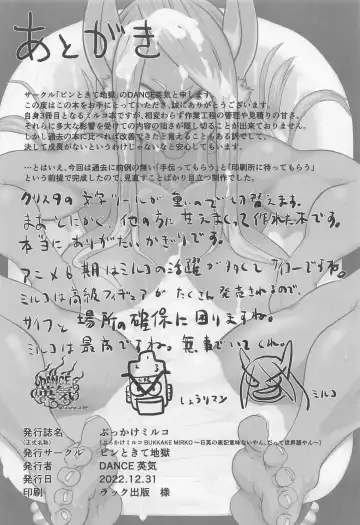 あとがき
サークル「ピンときて地獄」のDANCE英気と申します。
この度はこの本をお手にとっていただき、誠にありがとうございます。
自身3冊目となるミルコ本ですが、相変わらず作業工程の管理や見積りの甘さ、
それらに多大な影響を受けての内容の拙さが隠し切ることが出来ておりません。
しかし過去の本に比べれば改善できたと言えることもある訳でして、
決して成長がないというわけじゃないなと安心してもいます。
…とはいえ、今回は過去に前例の無い「手伝ってもらう」と「印刷所に待ってもらう」
という前提で完成したので、見直すことばかり目立つ制作でした。
クリスタの文字ツールが重いので切り替えます。
まあーとにかく、他の方に甘えまくって作れた本です。
本当にありがたいかぎりです。
アニメ6期はミルコの活躍が多くてサイコーですね。
ミルコは高級フィギュアがたくさん発売されるので、
サイフと場所の確保に困りますね。
ミルコは最高ですね。無事でいてくれ。
DANCE
英気
しょうりマン
ミルコ
発行誌名 ぶっかけミルコ
(正式名称) (ぶっかけミルコ BUKKAKE MIRKO 〜日英の表記意味ないやん、だって世界語やん〜)
発行サークル ピンときて地獄
発行者 DANCE 英気
発行日 2022.12.31
印刷 ラック出版 様